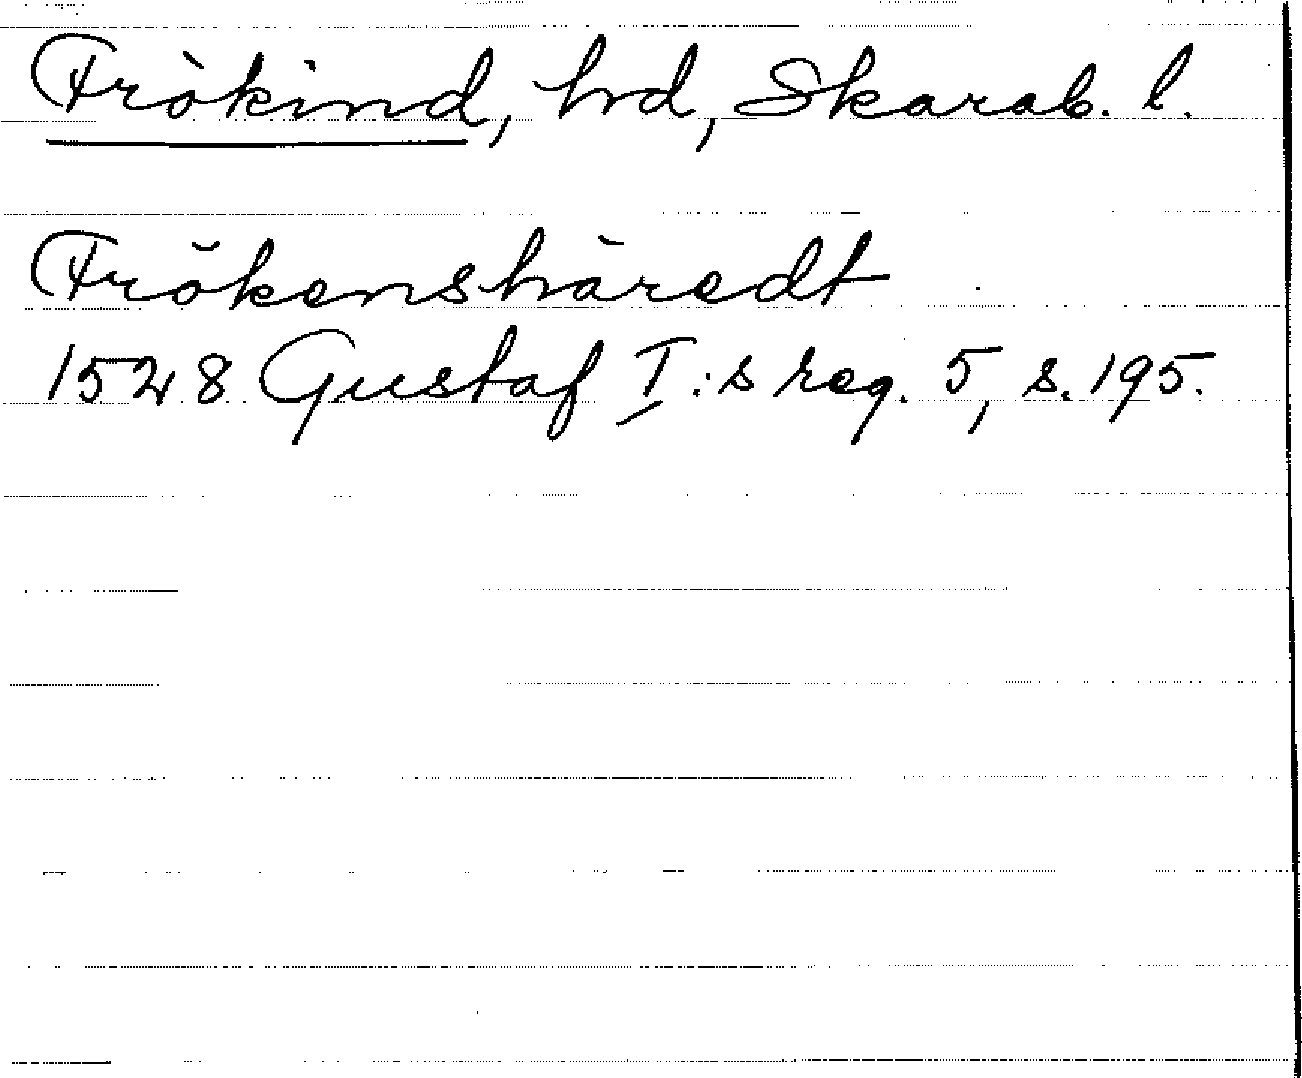 Frökind, hrd, Skarab. l.
Frökenshäredt
1528 Gustaf I:s reg. 5, s. 195.